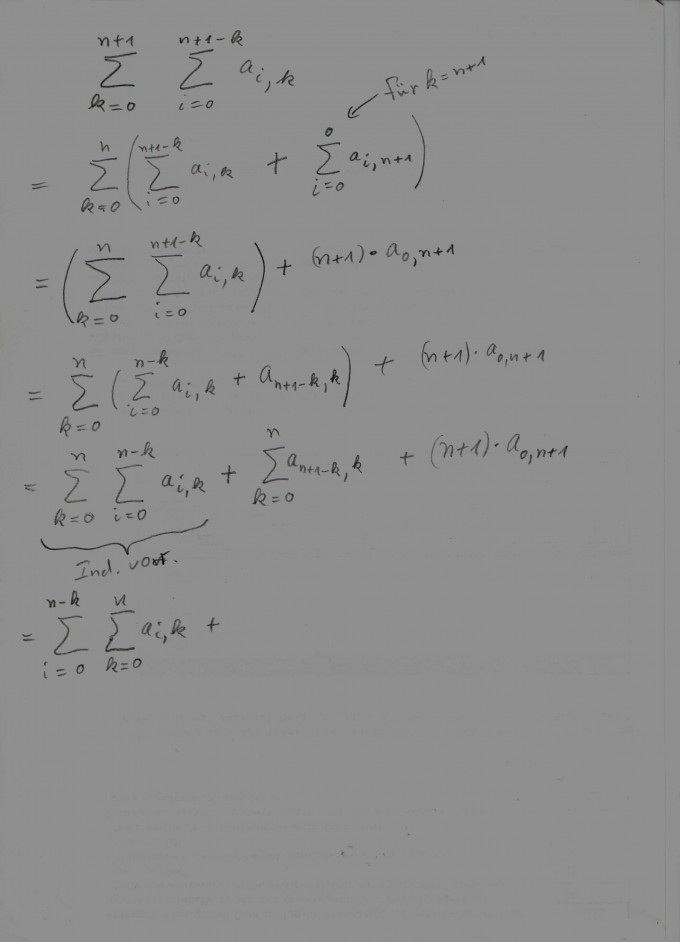 \sum_{k=0}^{n+1} \sum_{i=0}^{n+1-k} a_{i,k}
für k=n+1
= \sum_{k=0}^{n} \left( \sum_{i=0}^{n+1-k} a_{i,k} + \sum_{i=0}^{0} a_{i,n+1} \right)
= \left( \sum_{k=0}^{n} \sum_{i=0}^{n+1-k} a_{i,k} \right) + (n+1) \cdot a_{0,n+1}
= \sum_{k=0}^{n} \left( \sum_{i=0}^{n-k} a_{i,k} + a_{n+1-k,k} \right) + (n+1) \cdot a_{0,n+1}
= \sum_{k=0}^{n} \sum_{i=0}^{n-k} a_{i,k} + \sum_{k=0}^{n} a_{n+1-k,k} + (n+1) \cdot a_{0,n+1}
Ind. vor.
= \sum_{i=0}^{n-k} \sum_{k=0}^{n} a_{i,k} +